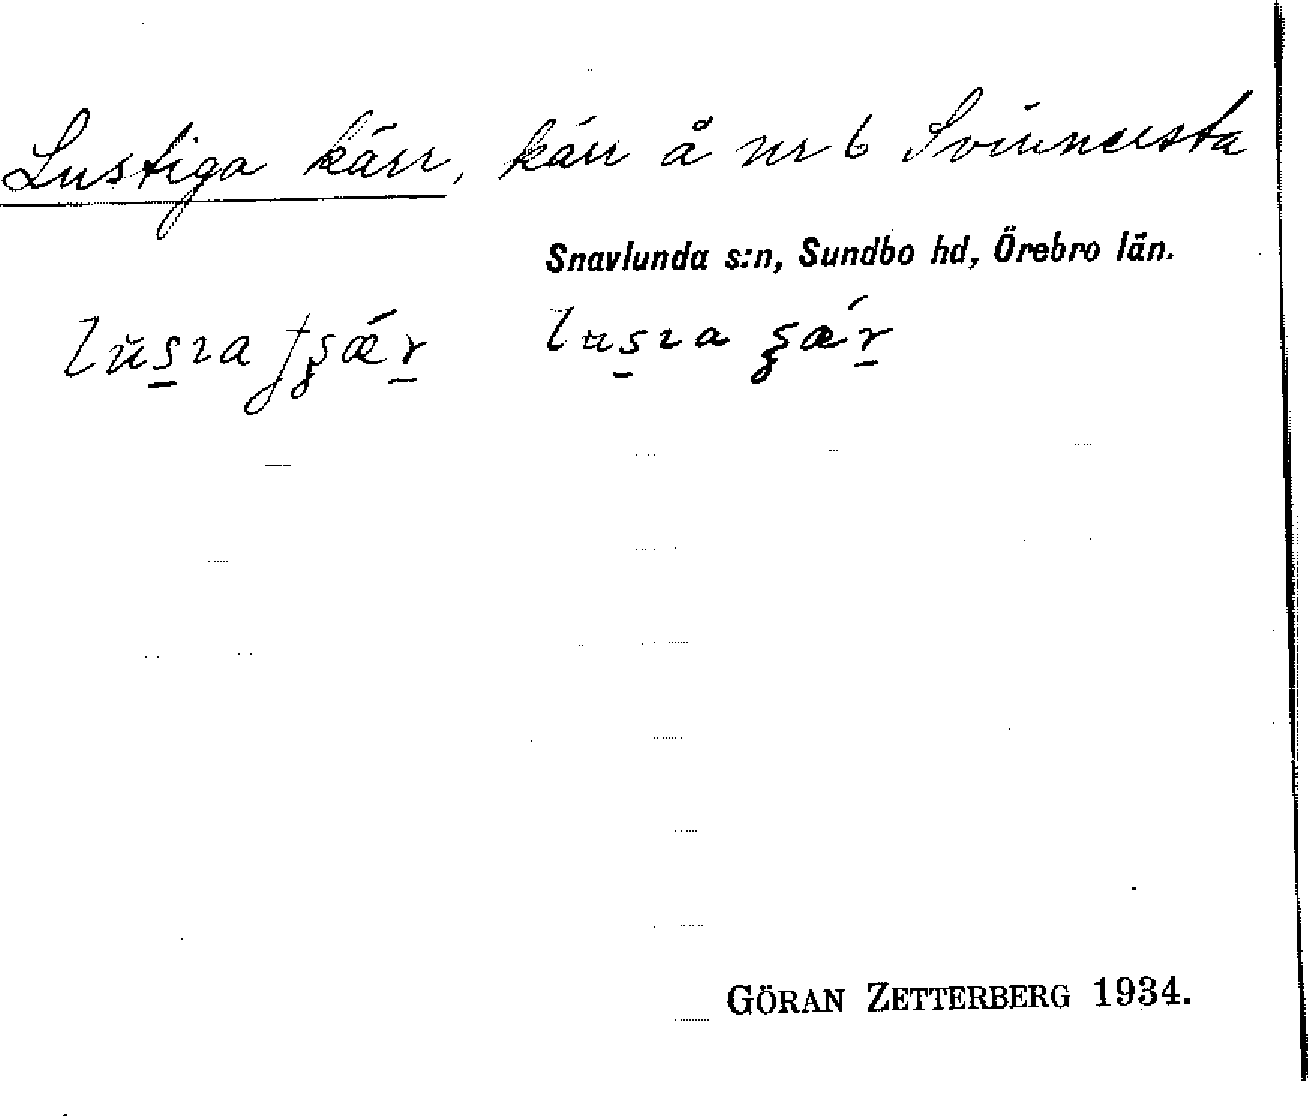 Lustiga kärr, kärr å nr 6 Svinnersta
Snavlunda s:n, Sundbo hd, Örebro län.
GÖRAN ZETTERBERG 1934.